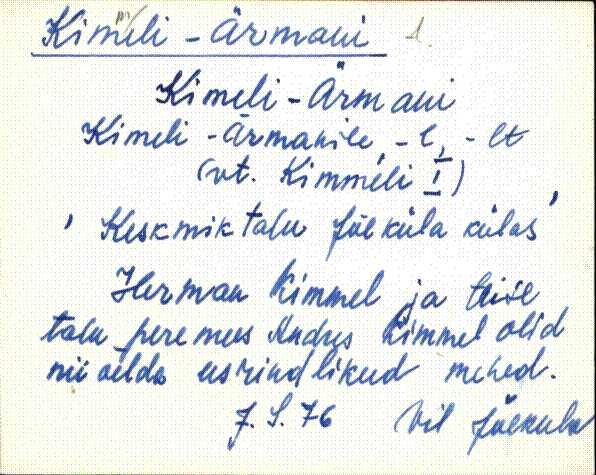 Kimeli - Ärmani 1.
Kimeli - Ärmani
Kimeli - Ärmanile, -l, - lt
(vt. Kimmeli I)
' Keskmik talu Jõeküla külas '
Herman Kimmel ja teise
talu peremees Andres Kimmel olid
nii öelda esirindlikud mehed.
J. S. 76 Vil Jõeküla